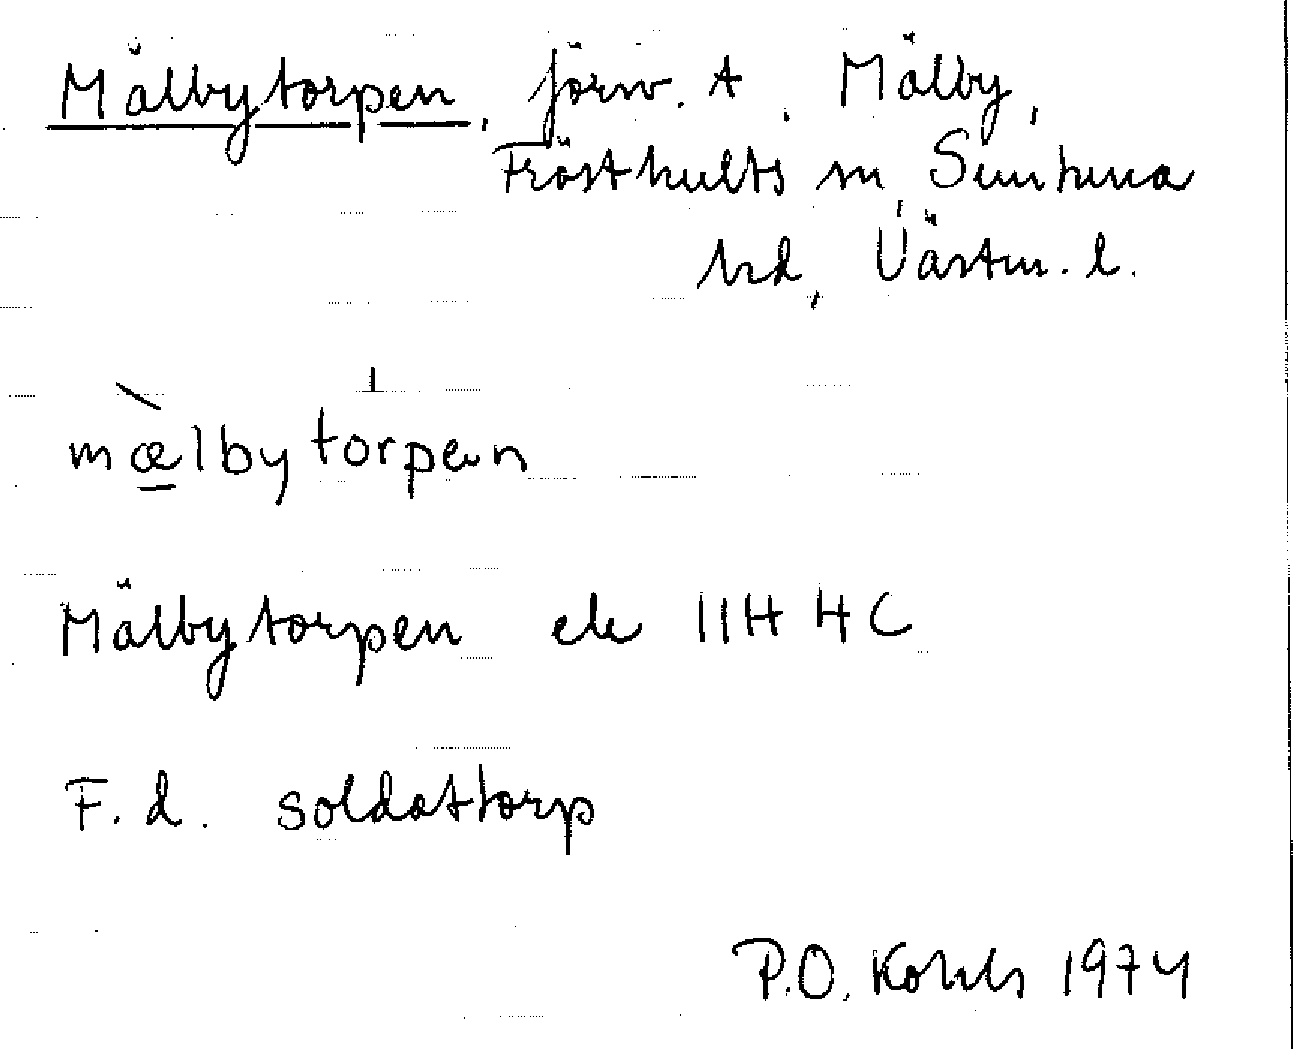 Mälbytorpen, förw. t. Mälby,
Frösthults sn, Simtuna
hd, Västm. l.
mælbytorpen
Mälbytorpen ek 11H 4C
F.d. soldattorp
P.O. Kohls 1974